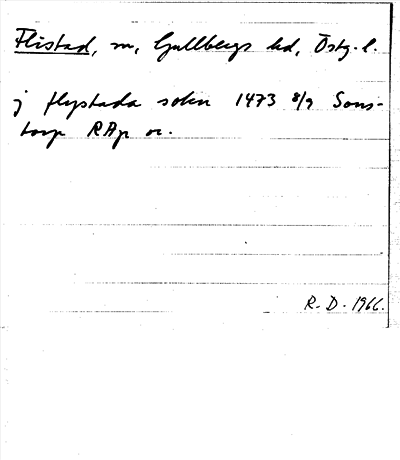 Flistad, sn, Gullbergs hd, Östg. l.
j flystada sokn 1473 8/9 Sons-
torp RAp or.
R. D. 1966.